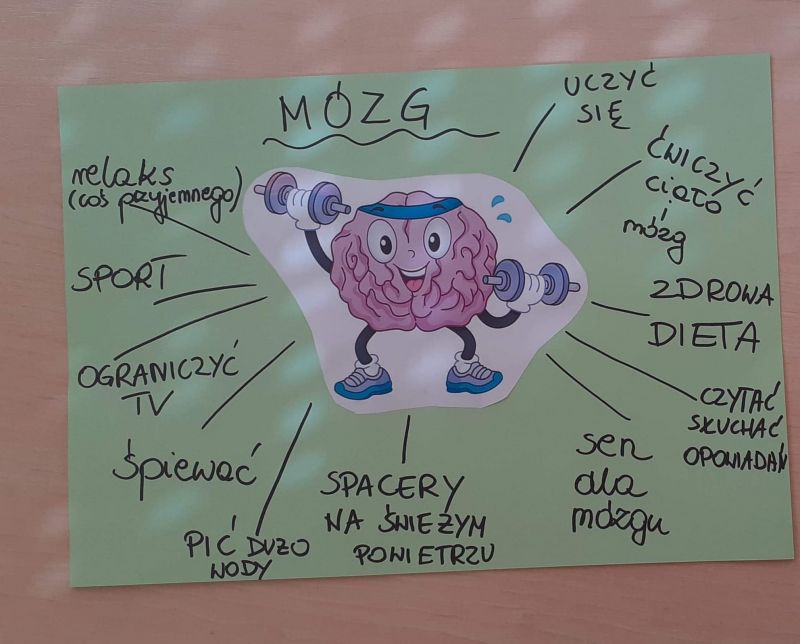 MÓZG
UCZYĆ
SIĘ
ĆWICZYĆ
ciało
i
mózg
ZDROWA
DIETA
CZYTAĆ
SŁUCHAĆ
OPOWIADAŃ
sen
dla
mózgu
SPACERY
NA ŚWIEŻYM
POWIETRZU
PIĆ DUŻO
WODY
śpiewać
OGRANICZYĆ
TV
SPORT
relaks
(coś przyjemnego)